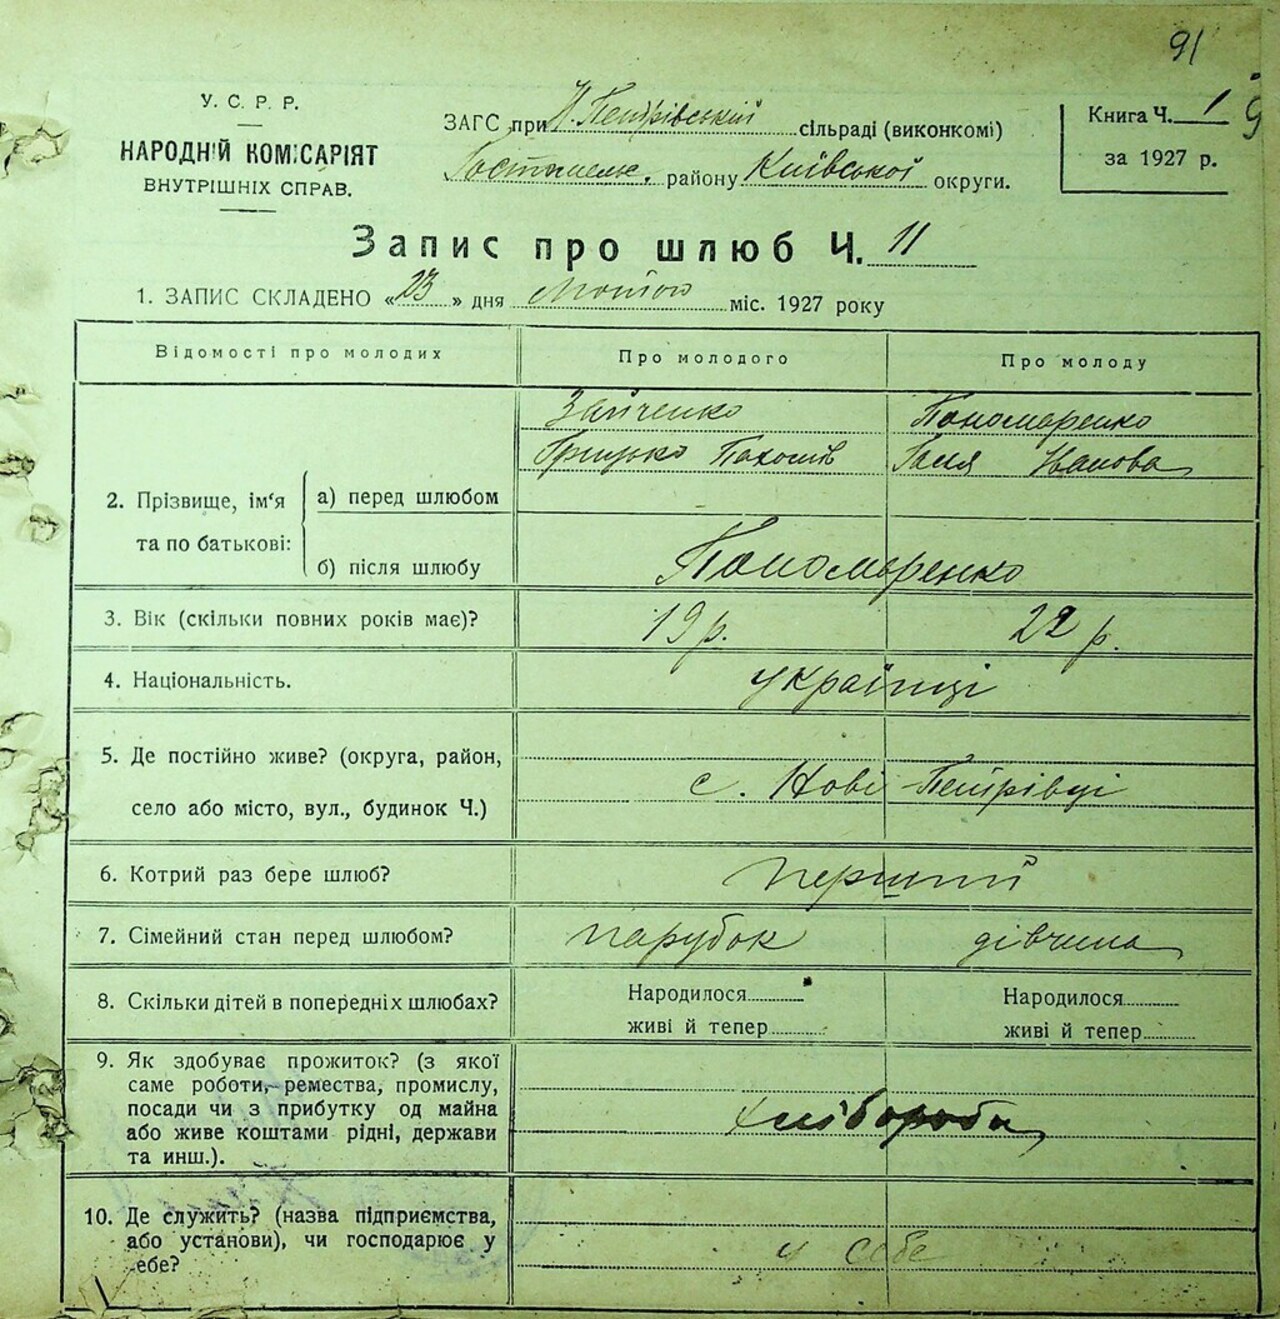 91
У. С. Р. Р.
НАРОДНІЙ КОМІСАРІЯТ
ВНУТРІШНІХ СПРАВ.
ЗАГС при Н. Петрівській сільраді (виконкомі)
Гостомельк. району Київської округи.
Книга Ч. 1
за 1927 р.
Запис про шлюб Ч. 11
1. ЗАПИС СКЛАДЕНО «23» дня лютого міс. 1927 року
Відомості про молодих
Про молодого
Про молоду
2. Прізвище, ім‘я
та по батькові:
а) перед шлюбом
Зайченко
Грицько Пахомів
Пономаренко
Галя Іванова
б) після шлюбу
Пономаренко
3. Вік (скільки повних років має)?
19 р.
22 р.
4. Національність.
українці
5. Де постійно живе? (округа, район,
село або місто, вул., будинок Ч.)
с. Нові-Петрівці
6. Котрий раз бере шлюб?
перший
7. Сімейний стан перед шлюбом?
парубок
дівчина
8. Скільки дітей в попередніх шлюбах?
Народилося
живі й тепер
Народилося
живі й тепер
9. Як здобуває прожиток? (з якої
саме роботи, ремества, промислу,
посади чи з прибутку од майна
або живе коштами рідні, держави
та инш.).
хлібороби
10. Де служить? (назва підприємства,
або установи), чи господарює у
ебе?
у себе